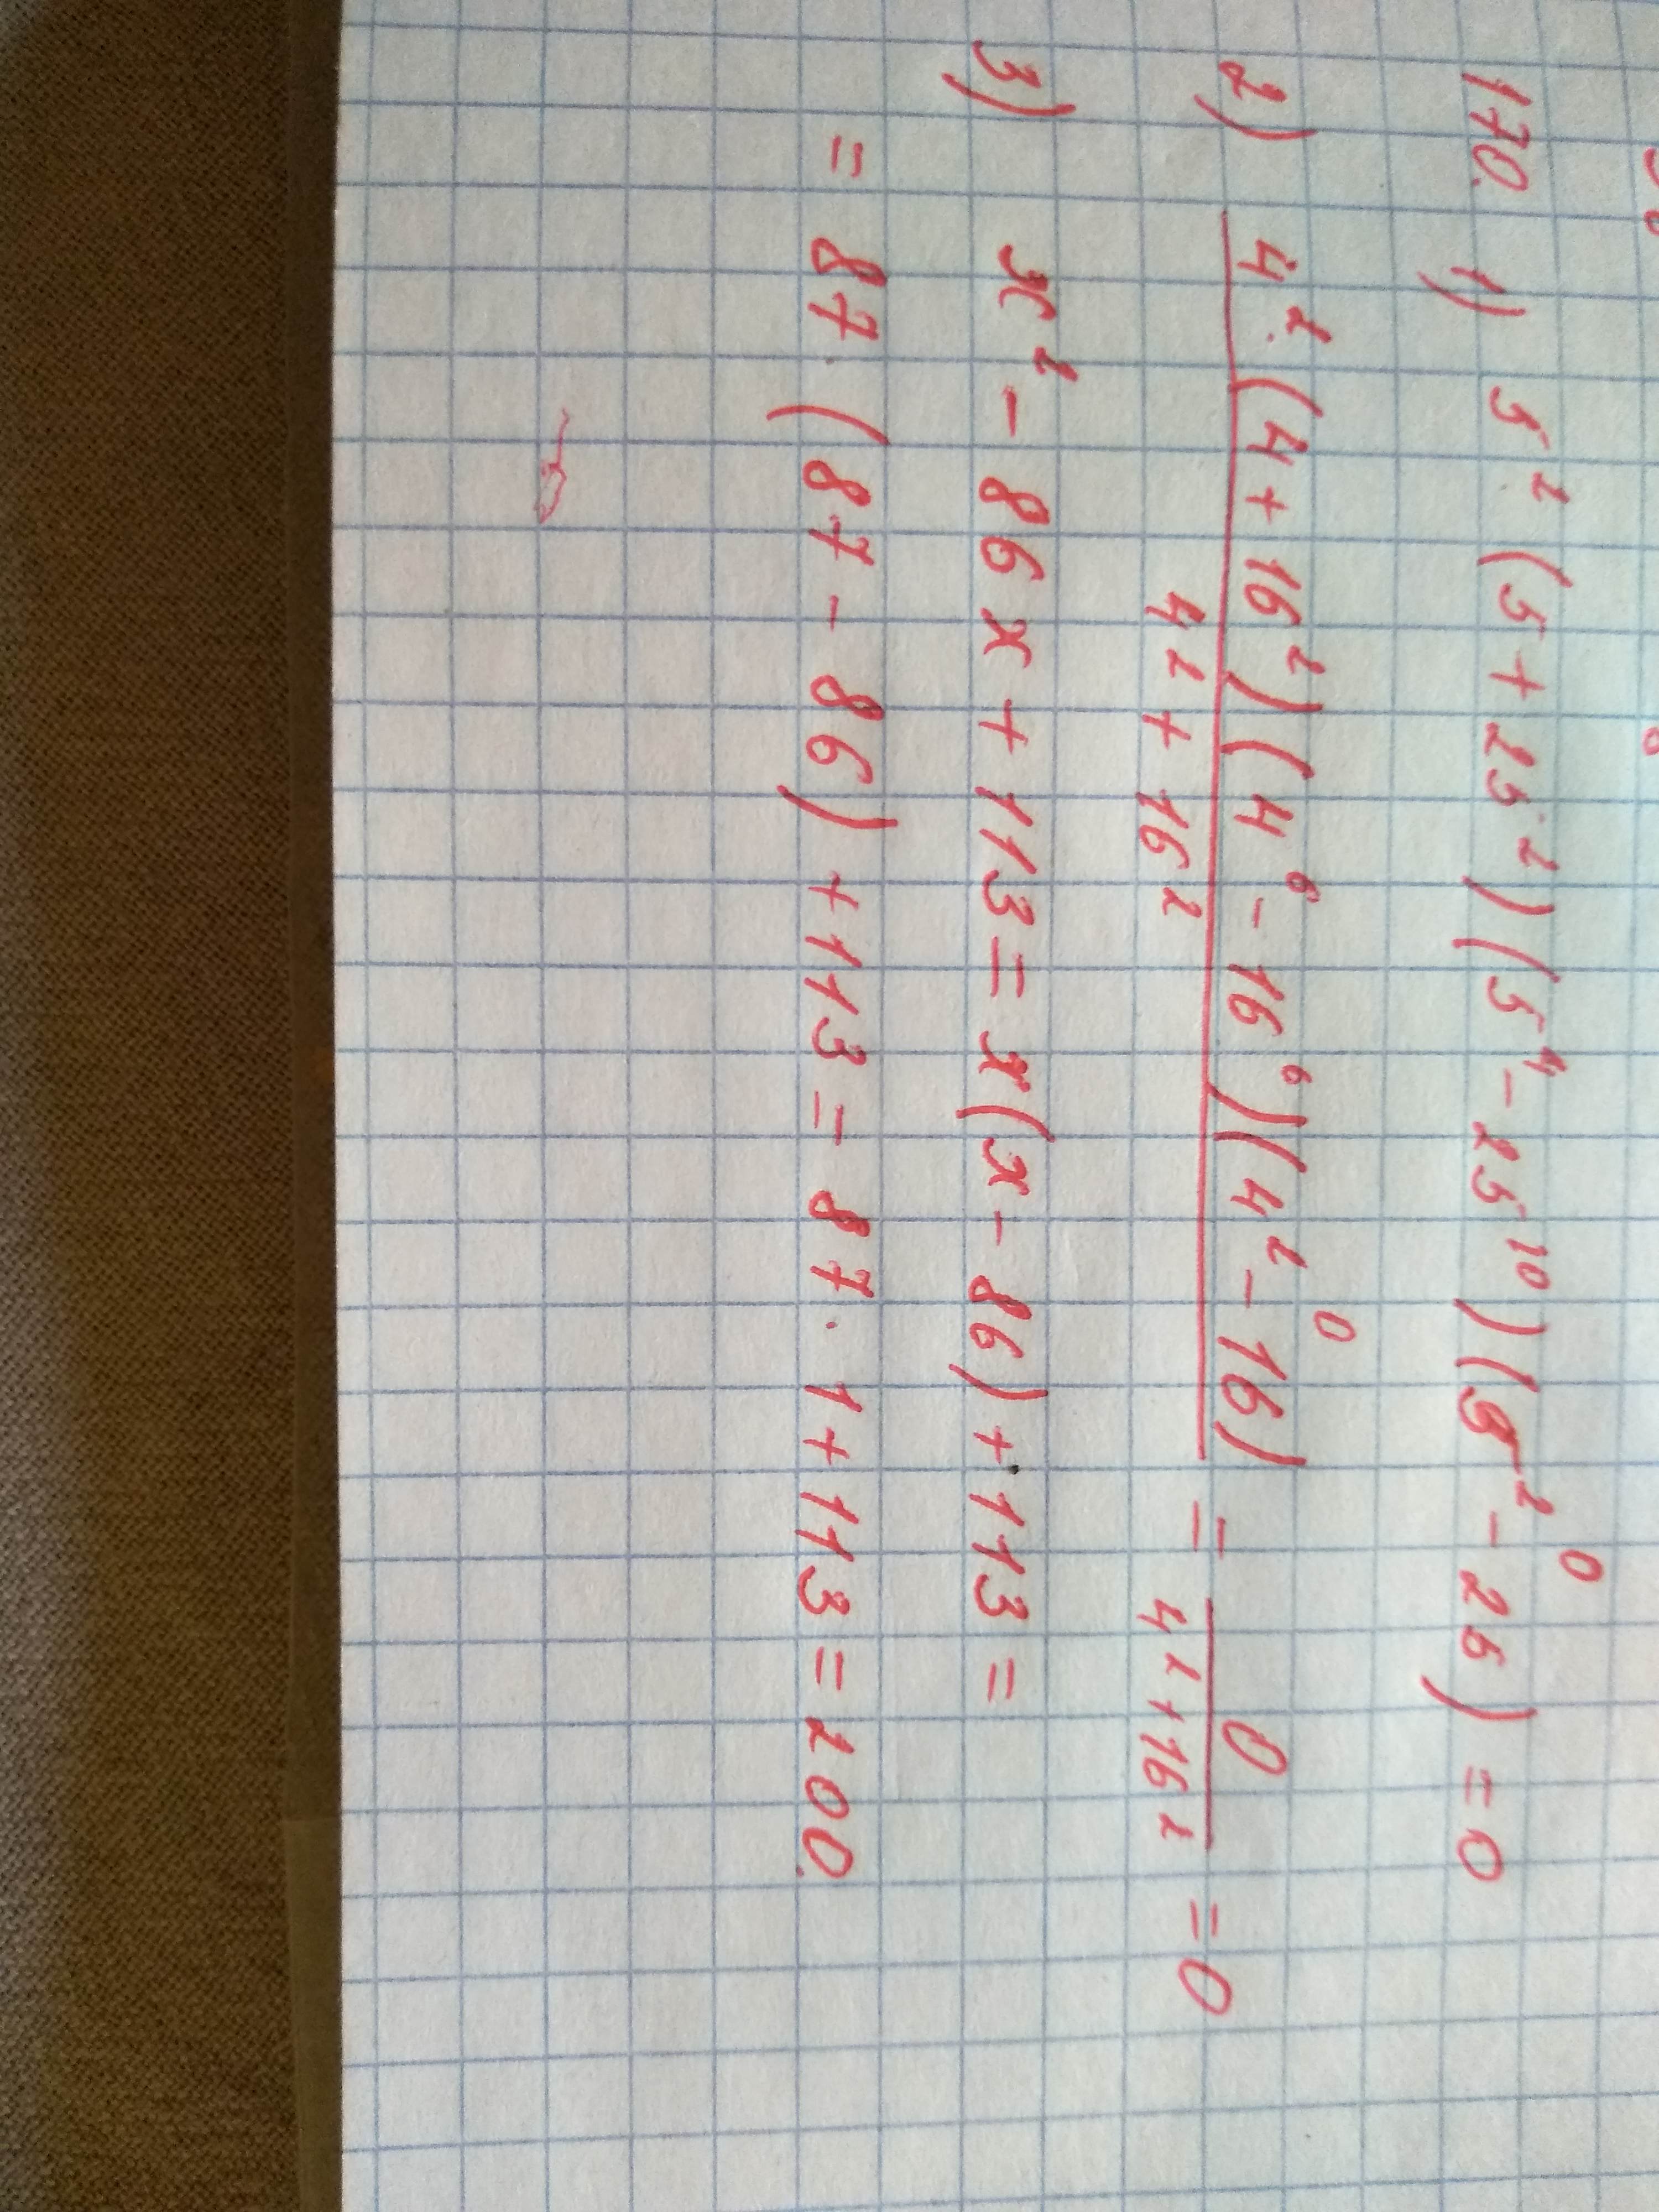 170. 1) 5² · (5 + 25²)(5⁴ - 25¹⁰)(5² - 25) = 0
0
2) 4² · (4 + 16²)(4⁶ - 16⁶)(4² - 16) / 4² + 16² = 0 / 4² + 16² = 0
0
3) x² - 86x + 113 = x(x - 86) + 113 =
= 87 · (87 - 86) + 113 = 87 · 1 + 113 = 200.